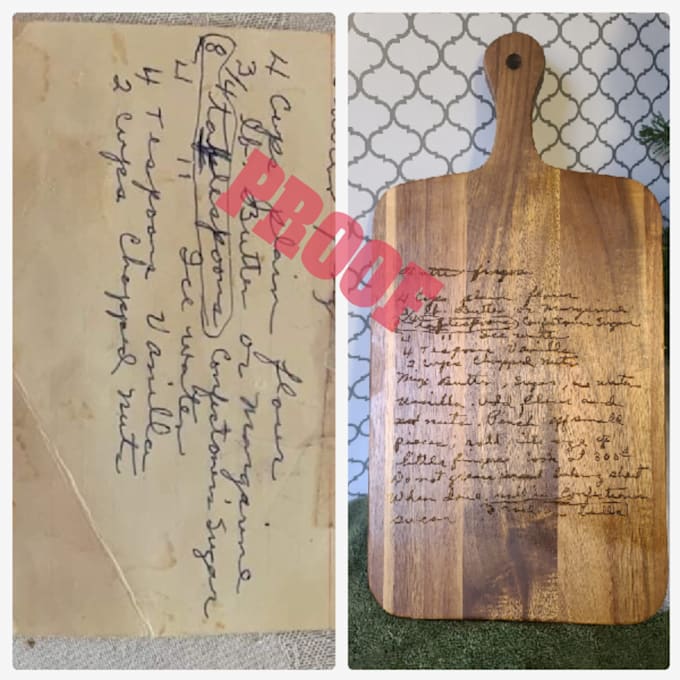 4 Cups plain flour
3/4 lb. Butter or Margarine
8 4 tablespoons Sugar
4 " " Ice water
4 Tespoons Vanilla
2 cups Chopped Nuts
PROOF
Butter fingers
4 Cups plain flour
3/4 lb. Butter or Margarine
tablespoons Sugar
4 " " Ice water
4 Tespoons Vanilla
2 cups Chopped Nuts
Mix Butter, Sugar, ice water
Vanilla. Add flour and
nuts. Pinch off small
pieces and roll size of
little fingers. Cook at 300°
Do not grease baking sheet
When done, roll in
sugar